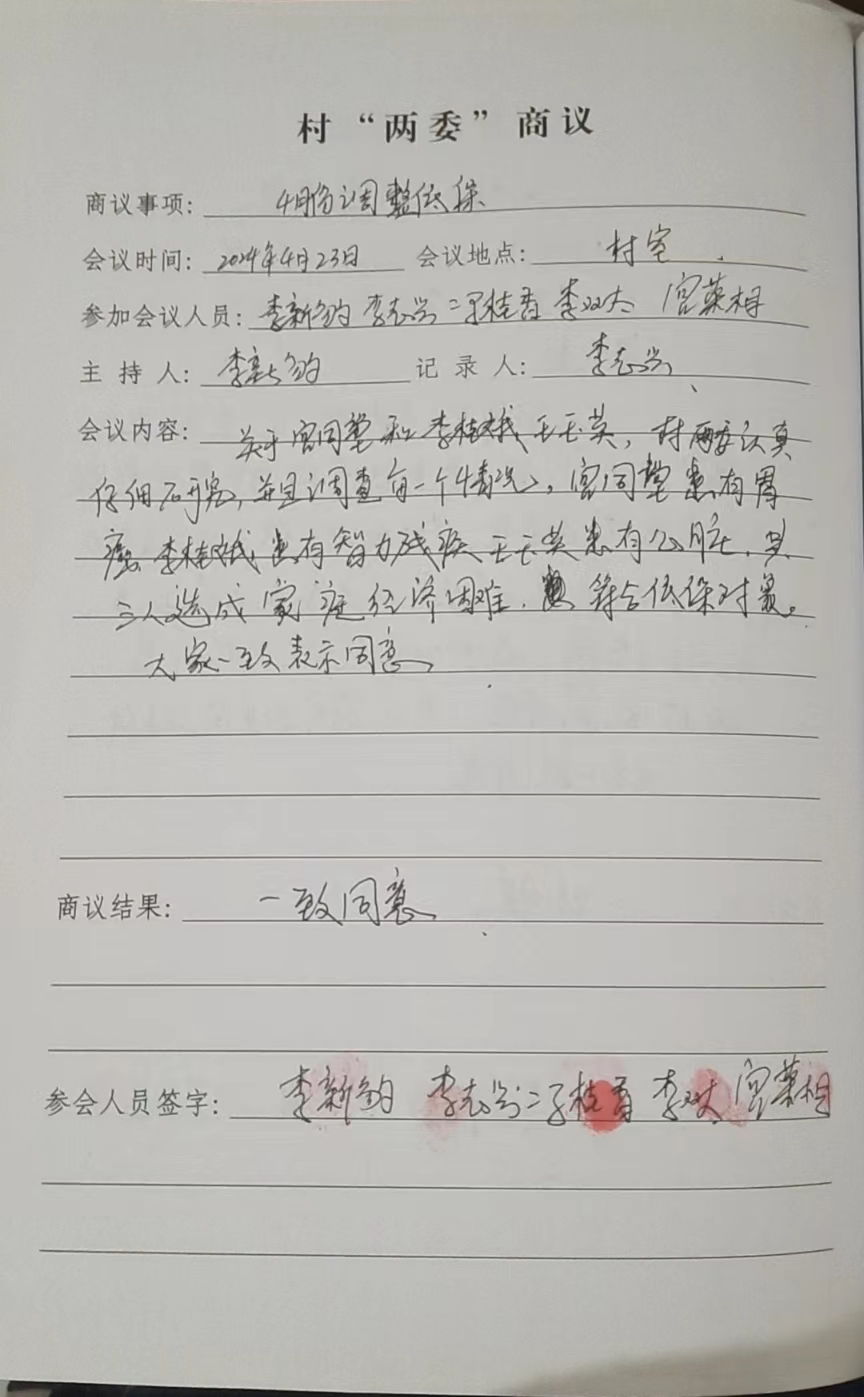 村“两委”商议
商议事项: 4月份调整低保
会议时间: 2024年4月23日 会议地点: 村室
参加会议人员: 李新钧 李志兴 于桂香 李双大 宫荣相
主持人: 李新钧 记录人: 李志兴
会议内容: 关于宫同堂和李桂娥王玉英，村两委认真
仔细研究，并且调查每一个情况，宫同堂患有胃
癌 李桂娥患有智力残疾 王玉英患有心脏，其
三人造成家庭经济困难，符合低保对象。
大家一致表示同意
商议结果: 一致同意
参会人员签字: 李新钧 李志兴 于桂香 李双大 宫荣相